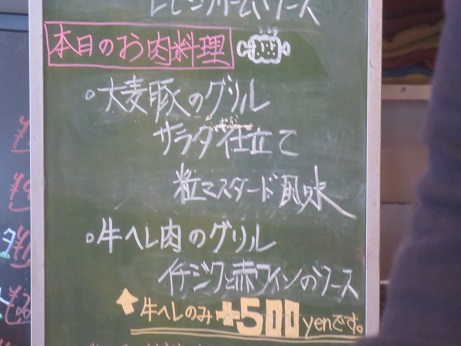 本日のお肉料理
○大麦豚のグリル
サラダ仕立て
粒マスタード風味
○牛ヘレ肉のグリル
イチジクと赤ワインのソース
牛ヘレのみ +500yenです。